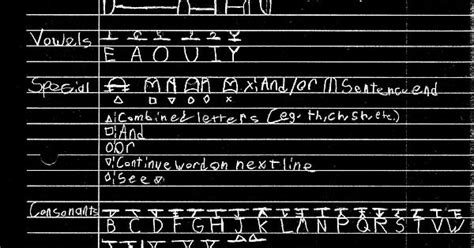 Vowels
E A O U I Y
Special x: And/or Sentence end
△ □ ▽ ○ x
△: Combined letters (eg. th, ch, sh, etc.)
□: And
○: Or
▽: Continue word on next line
Consonants
B C D F G H J K L M N P Q R S T V W